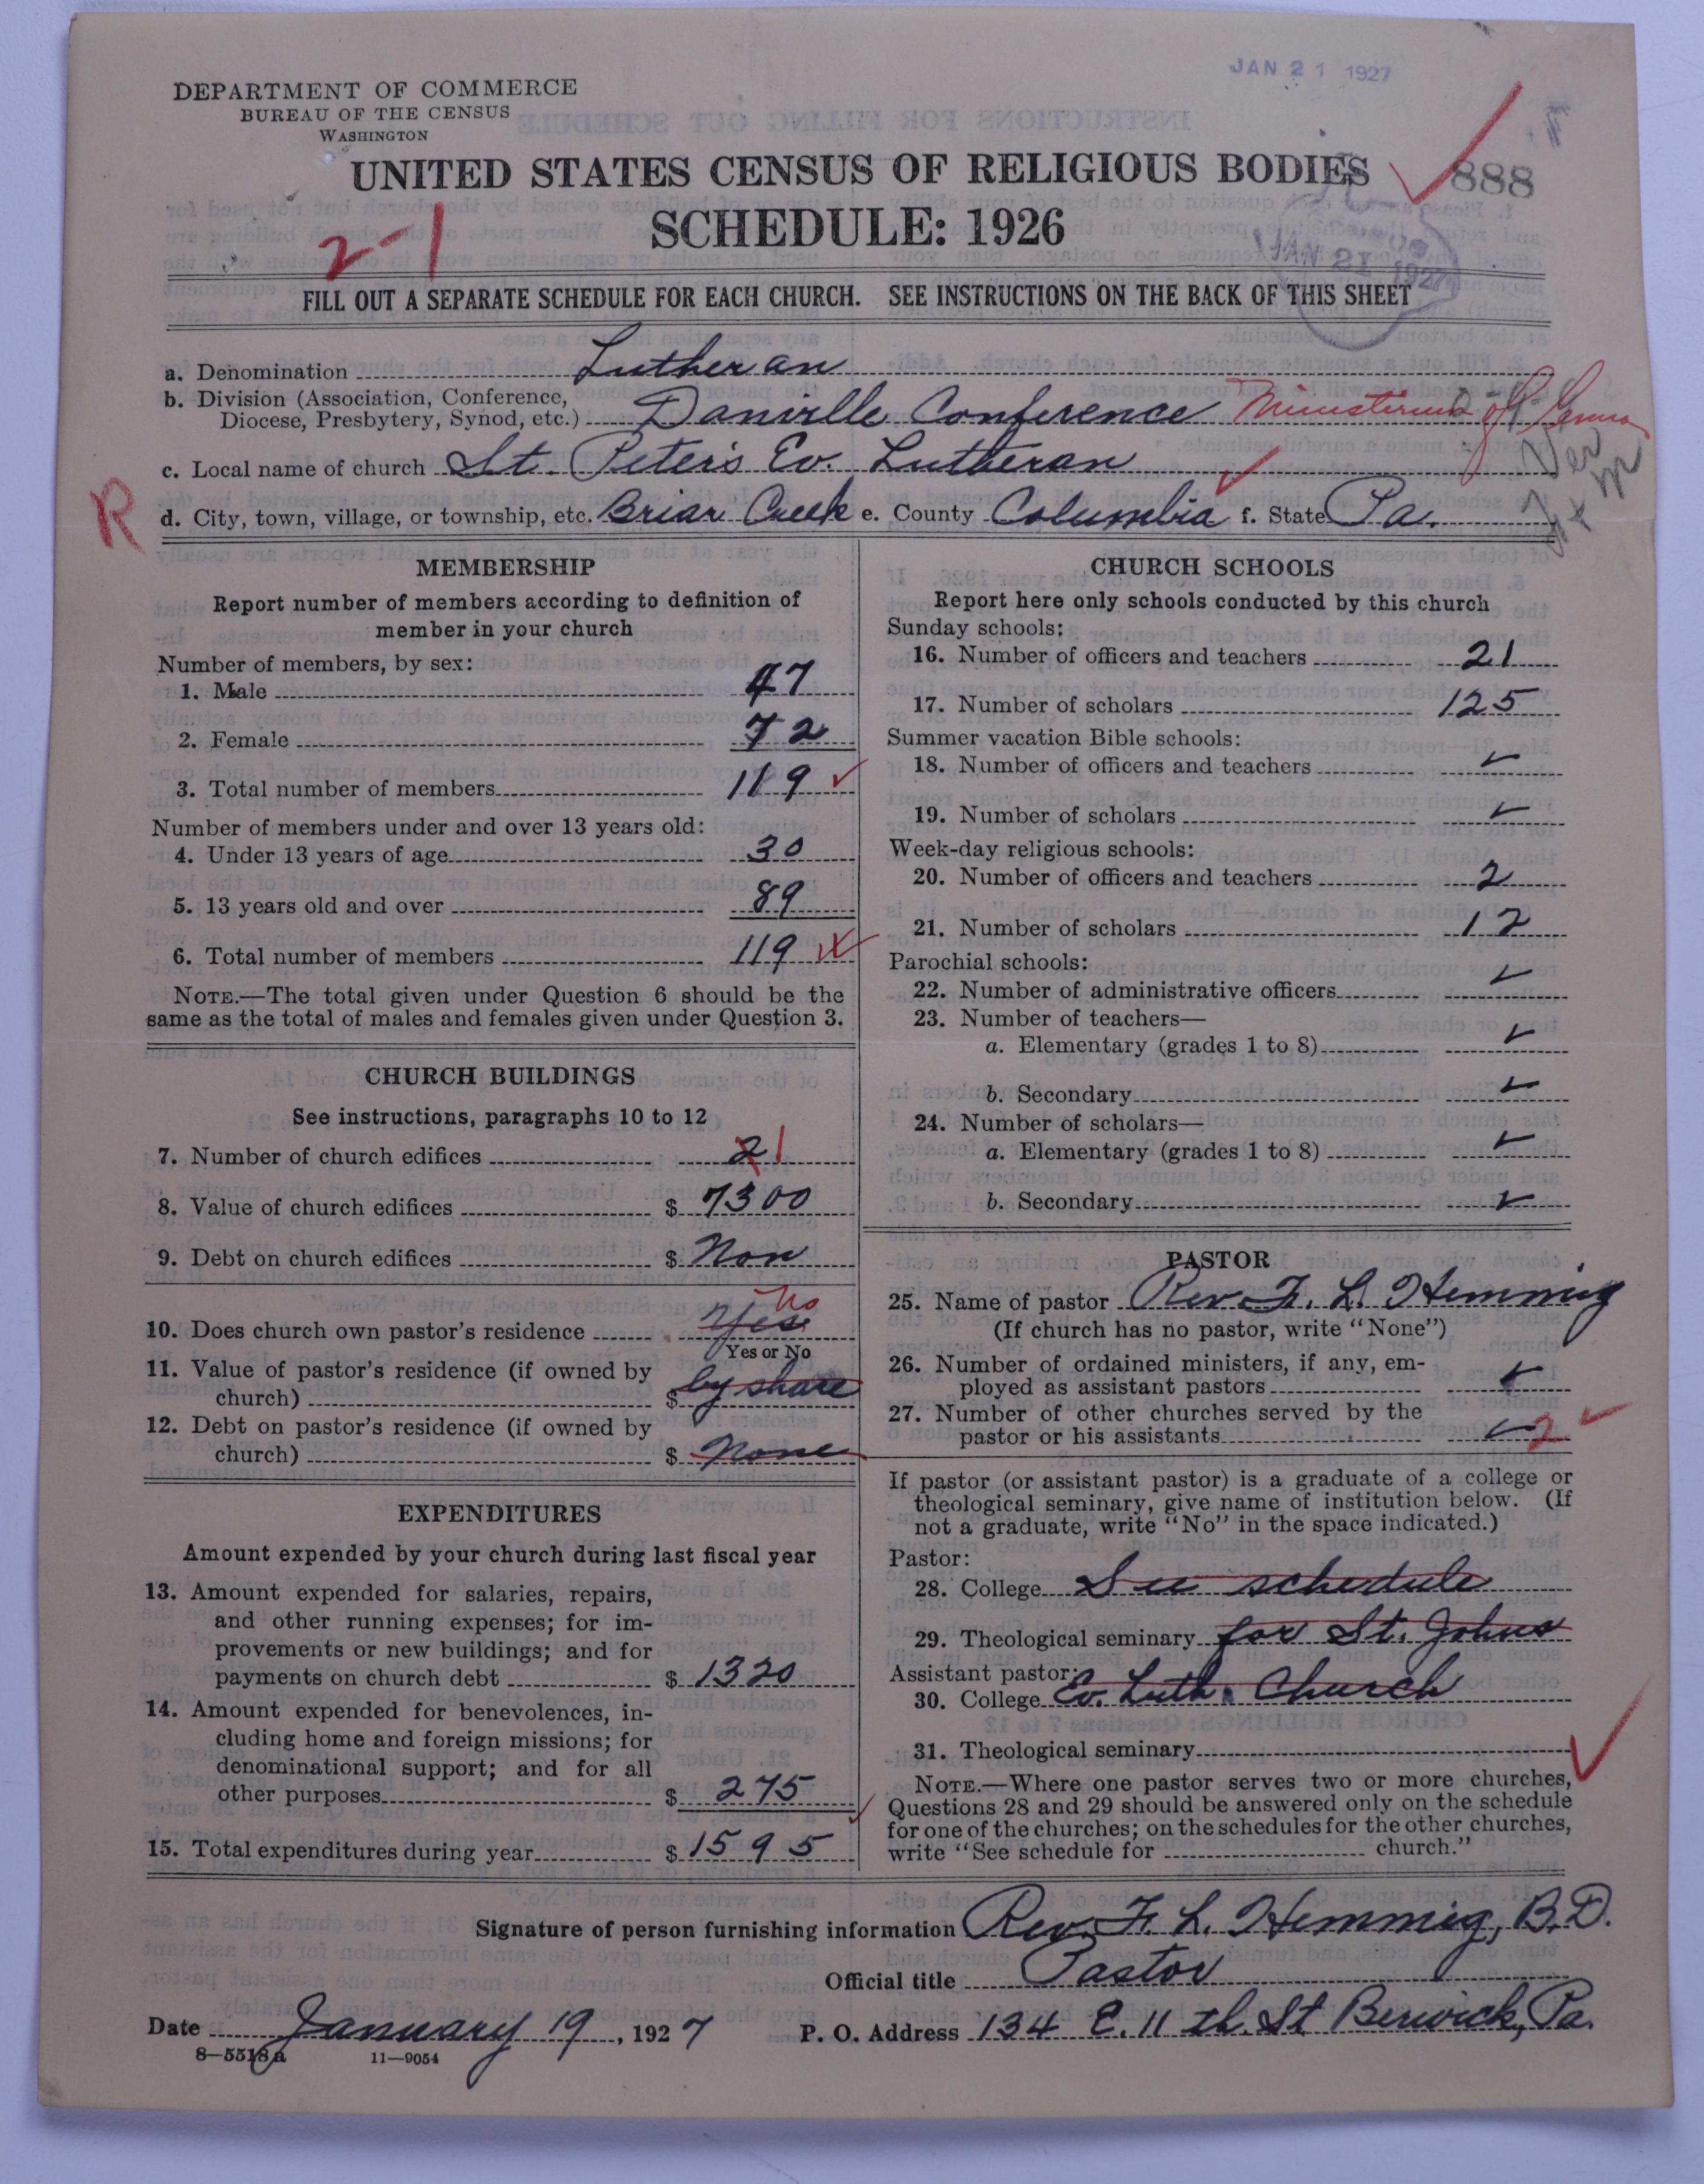 JAN 21 1927
DEPARTMENT OF COMMERCE
BUREAU OF THE CENSUS
WASHINGTON
UNITED STATES CENSUS OF RELIGIOUS BODIES
888
SCHEDULE: 1926
2-1
JAN 21 1927
FILL OUT A SEPARATE SCHEDULE FOR EACH CHURCH. SEE INSTRUCTIONS ON THE BACK OF THIS SHEET
a. Denomination Lutheran
b. Division (Association, Conference,
Diocese, Presbytery, Synod, etc.) Danville Conference Ministerium of Penna
c. Local name of church St. Peter's Ev. Lutheran
R
d. City, town, village, or township, etc. Briar Creek e. County Columbia f. State Pa.
MEMBERSHIP
Report number of members according to definition of
member in your church
Number of members, by sex:
1. Male 47
2. Female 72
3. Total number of members 119
Number of members under and over 13 years old:
4. Under 13 years of age 30
5. 13 years old and over 89
6. Total number of members 119
NOTE.—The total given under Question 6 should be the
same as the total of males and females given under Question 3.
CHURCH BUILDINGS
See instructions, paragraphs 10 to 12
7. Number of church edifices 2 1
8. Value of church edifices $ 7300
9. Debt on church edifices $ Non
10. Does church own pastor's residence Yes No
Yes or No
11. Value of pastor's residence (if owned by
church) $ by share
12. Debt on pastor's residence (if owned by
church) $ None
EXPENDITURES
Amount expended by your church during last fiscal year
13. Amount expended for salaries, repairs,
and other running expenses; for im-
provements or new buildings; and for
payments on church debt $ 1320
14. Amount expended for benevolences, in-
cluding home and foreign missions; for
denominational support; and for all
other purposes $ 275
15. Total expenditures during year $ 1595
CHURCH SCHOOLS
Report here only schools conducted by this church
Sunday schools:
16. Number of officers and teachers 21
17. Number of scholars 125
Summer vacation Bible schools:
18. Number of officers and teachers
19. Number of scholars
Week-day religious schools:
20. Number of officers and teachers 2
21. Number of scholars 12
Parochial schools:
22. Number of administrative officers
23. Number of teachers—
a. Elementary (grades 1 to 8)
b. Secondary
24. Number of scholars—
a. Elementary (grades 1 to 8)
b. Secondary
PASTOR
25. Name of pastor Rev. F. L. Hemmig
(If church has no pastor, write "None")
26. Number of ordained ministers, if any, em-
ployed as assistant pastors
27. Number of other churches served by the
pastor or his assistants 2
If pastor (or assistant pastor) is a graduate of a college or
theological seminary, give name of institution below. (If
not a graduate, write "No" in the space indicated.)
Pastor:
28. College See schedule
29. Theological seminary for St. Johns
Assistant pastor:
30. College Ev. Luth. Church
31. Theological seminary
NOTE.—Where one pastor serves two or more churches,
Questions 28 and 29 should be answered only on the schedule
for one of the churches; on the schedules for the other churches,
write "See schedule for church."
Signature of person furnishing information Rev. F. L. Hemmig, B.D.
Official title Pastor
Date January 19, 1927 P. O. Address 134 E. 11th. St Berwick, Pa.
8—5518 a 11—9054